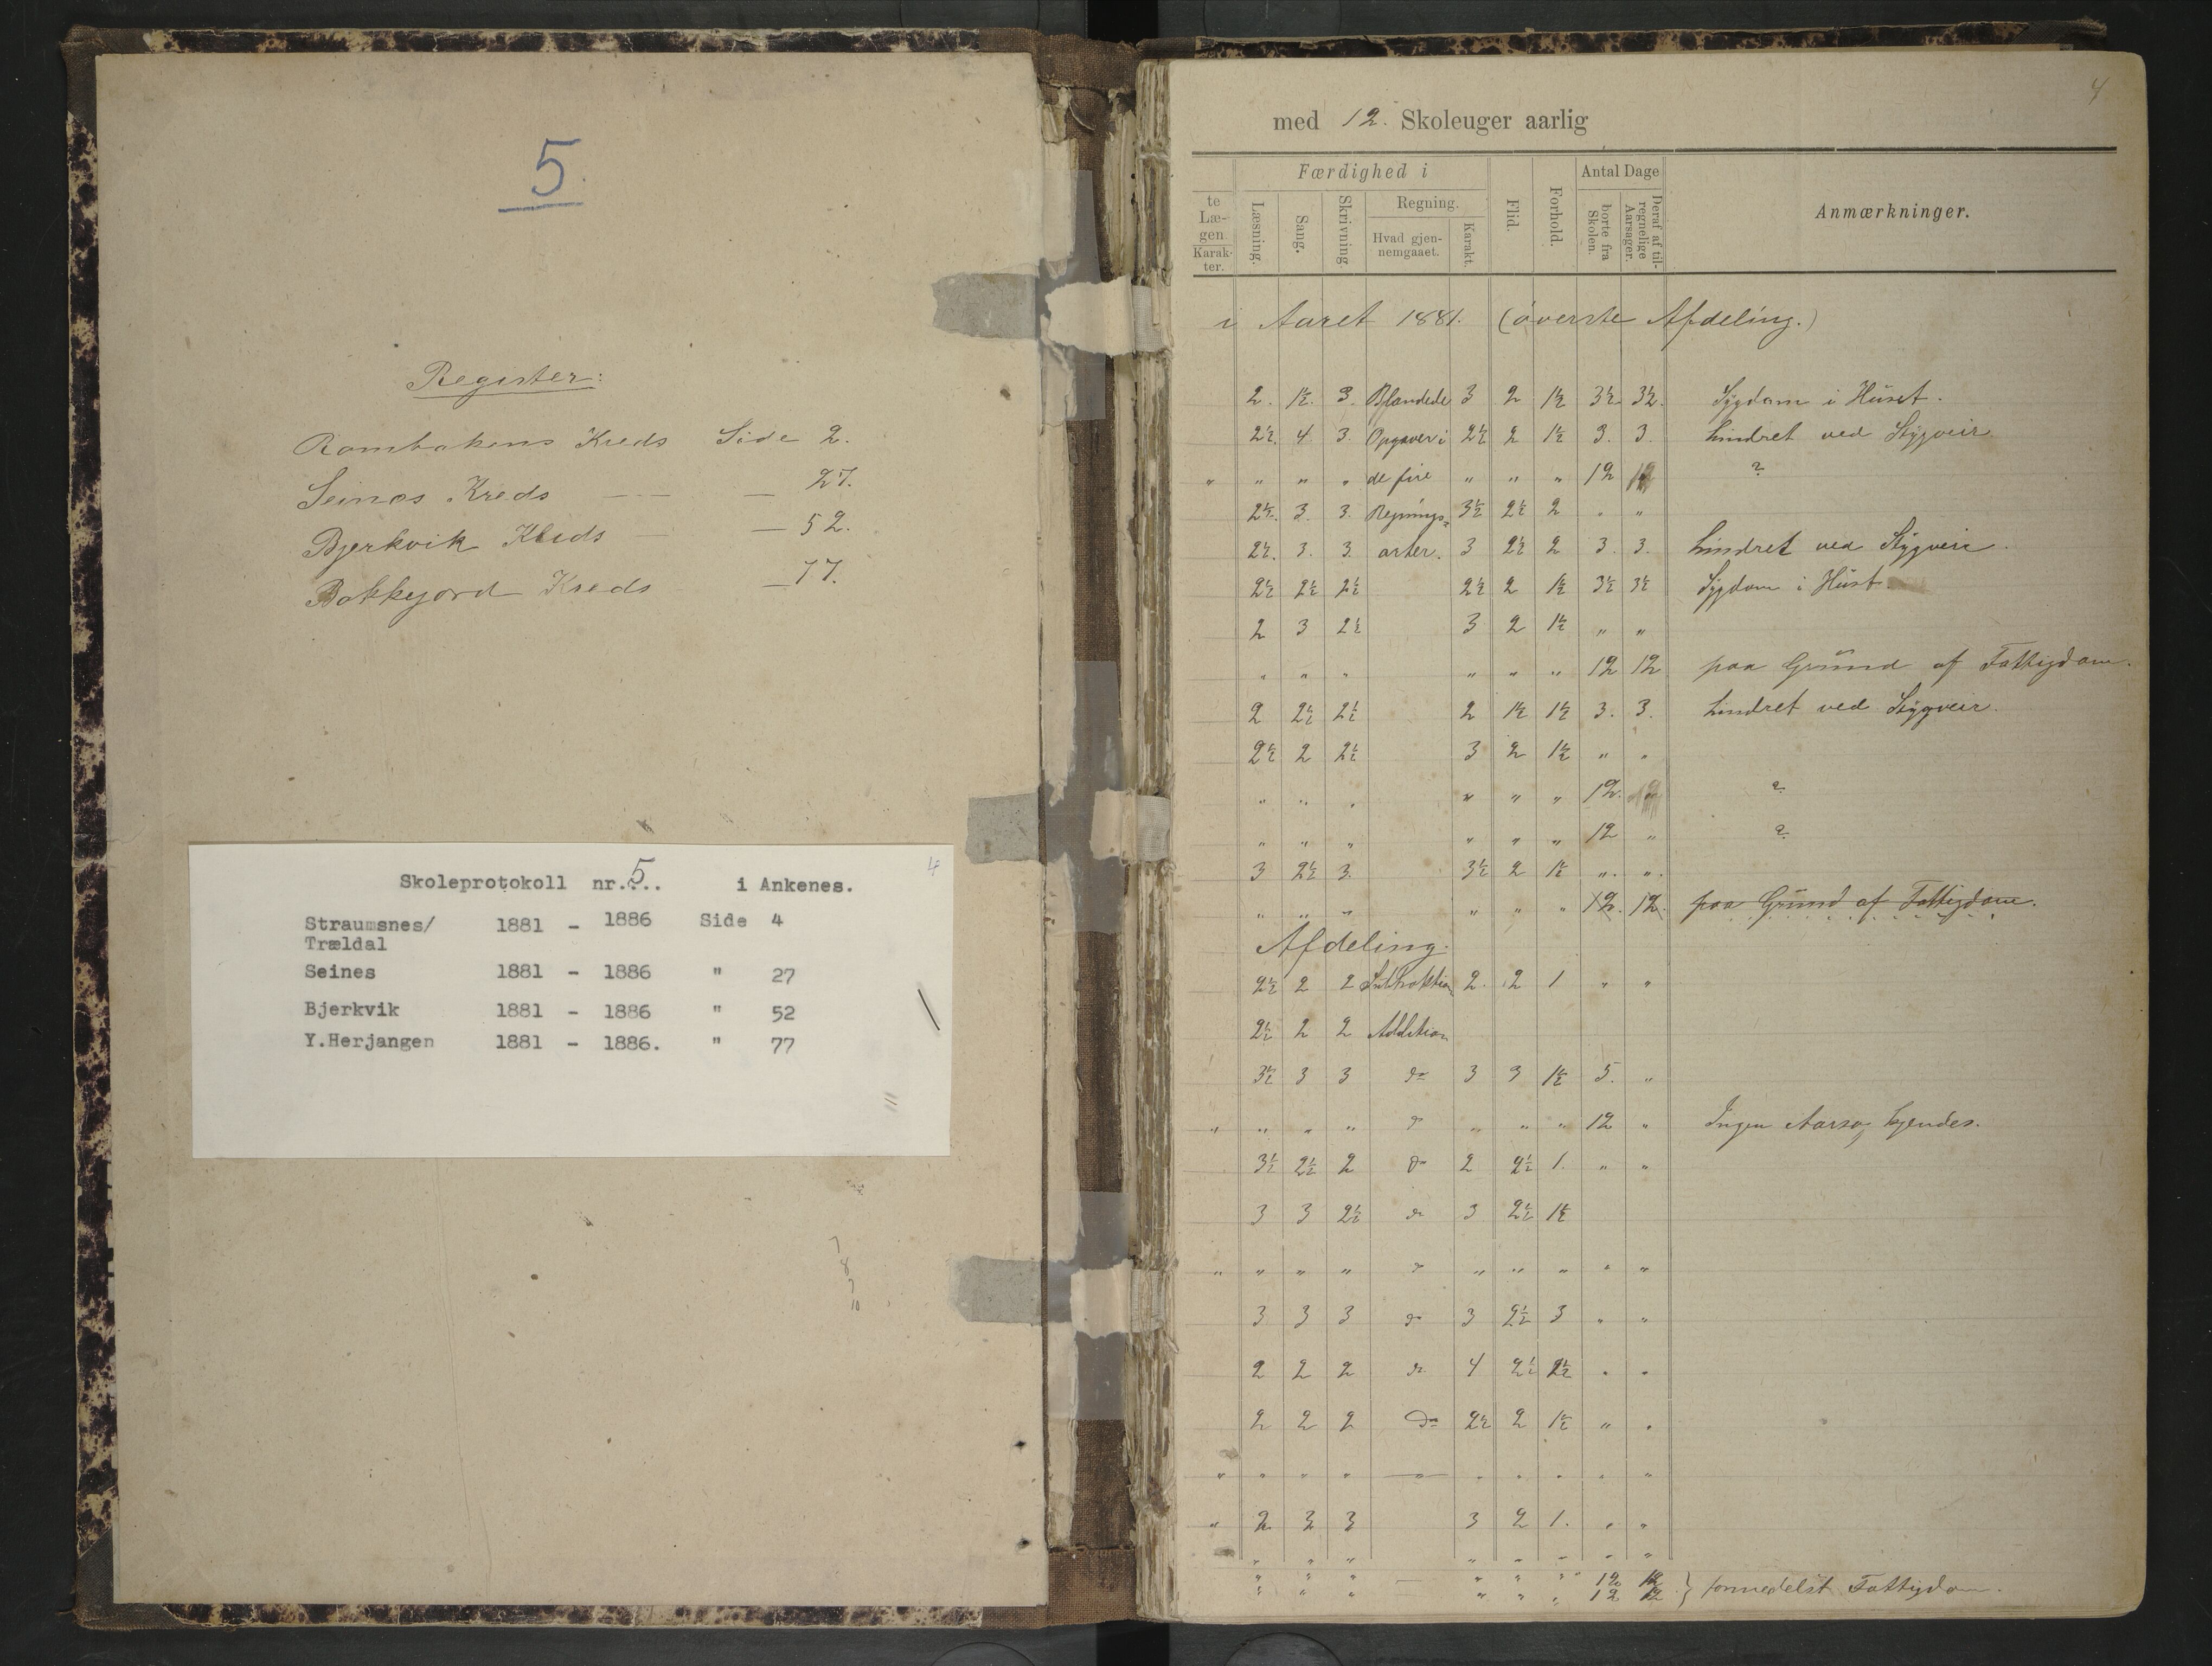 5.
Register:
Rombakens Kreds Side 2.
Seines Kreds — — 27.
Bjerkvik Kreds — — 52.
Bakkejord Kreds — 77.
Skoleprotokoll nr. 5... i Ankenes.
4
Straumsnes/ 1881 - 1886 Side 4
Trældal
Seines 1881 - 1886 " 27
Bjerkvik 1881 - 1886 " 52
Y.Herjangen 1881 - 1886. " 77
4
med 12. Skoleuger aarlig
te Læ- gen Karak- ter.
Færdighed i
Læsning. Sang. Skrivning.
Regning. Hvad gjen- nemgaaet. Karakt.
Flid. Forhold.
Antal Dage
borte fra Skolen. Deraf af til- regnelige Aarsager.
Anmærkninger.
i Aaret 1881. (øverste Afdeling.)
2. 1½. 3. Blandede 3 2 1½ 3½ 3½. Sygdom i Huset.
2½. 4. 3. Opgaver i 2½ 2 1½ 3. 3. hindret ved Stygveir
" " " " de fire " " " 12 12 ?
2½. 3. 3. Regnings= 3½ 2½ 2 " "
2½. 3. 3. arter. 3 2½ 2 3. 3. hindret ved Stygveir.
2½ 2½ 2½ 2½ 2 1½ 3½ 3½ Sygdom i Huset
2 3 2½ 3 2 1½ " "
" " " " " " 12 12 paa Grund af Fattigdom.
2 2½ 2½ 2 1½ 1½ 3. 3. hindret ved Stygveir.
2½ 2 2½ 3 2 1½ " "
" " " " " " 12. ?
" " " " " " 12 " ?
3 2½ 3. 3½ 2 1½ " "
" " " " " " 12. 12. paa Grund af Fattigdom.
Afdeling.
2½ 2 2 Subtraktion 2. 2 1 " "
2½ 2 2 Addition
3½ 3 3 do 3 3 1½ 5. "
" " " " do " " " 12 " Ingen Aarsag kjendes.
3½ 2½ 2 do 2 2½ 1. " "
3 3 2½ do 3 2½ 1½
" " " " do " " " " "
3 3 3 do 3 2½ 3 " "
2 2 2 do 4 2½ 2½ " "
2 2 2 do 2½ 2 1½ " "
" " " " — " " " " " "
" 2 3 3 3 2 1. " "
" " " " " " " "
" " " — " " " 12 12
" " " " " " 12 12 } formedelst Fattigdom.